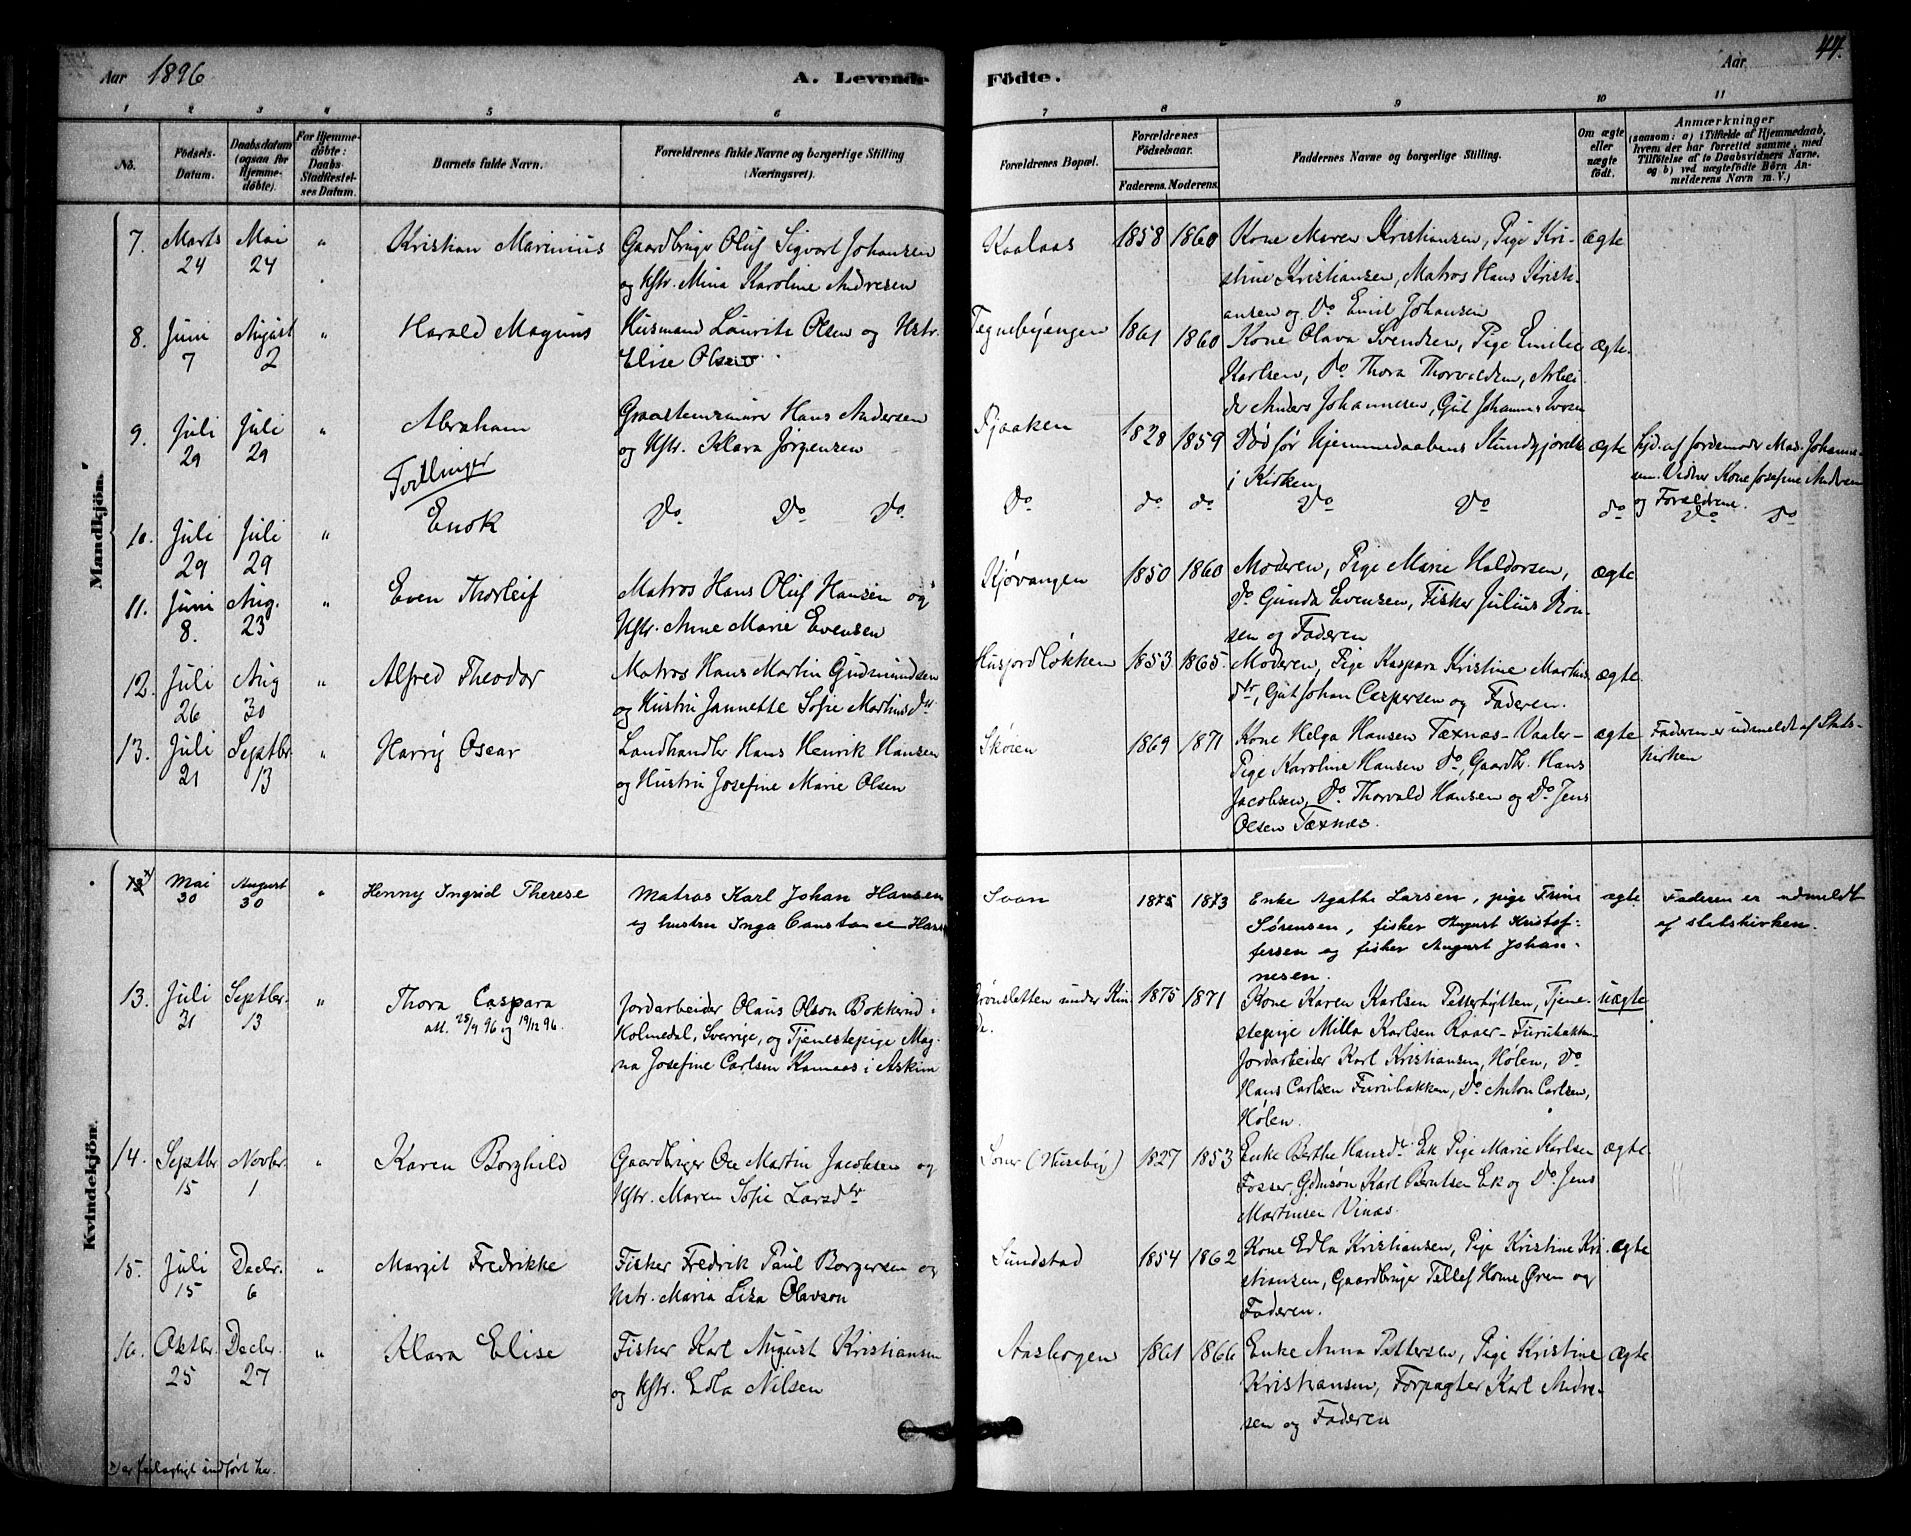 Aar 1896
A. Levende
Födte.
Aar
44.
1 2 3 4 5 6 7 8 9 10 11
No.
Födsels-
Datum.
Daabsdatum
(ogsaa for
Hjemme-
döbte).
For Hjemme-
döbte:
Daabs-
Stadfæstel-
ses Datum.
Barnets fulde Navn.
Forældrenes fulde Navne og borgerlige Stilling
(Næringsvei).
Forældrenes Bopæl.
Forældrenes
Födselsaar.
Faderens. Moderens.
Faddernes Navne og borgerlige Stilling.
Om ægte
eller
uægte
födt.
Anmærkninger
(saasom: a) i Tilfælde af Hjemmedaab,
hvem der har forrettet samme, med
Tilföielse af to Daabsvidners Navne.
og b) ved uægtefödte Börn An-
melderens Navn m. V.)
Mandkjön.
7. Marts Mai " Kristian Marinius Gaardbruger Oluf Sigvart Johansen Kaalaas 1858 1860 Kone Maren Kristiansen, Pige Kri- ægte
24 24 og Hstr. Mina Karoline Andresen stine Kristiansen, Matros Hans Kristi-
ansen og Do Emil Johansen
8. Juni August " Harald Magnus Husmand Lauritz Olsen og Hstr. Tegnebyengen 1861 1860 Kone Olava Svendsen, Pige Emilie ægte.
7 2 Elise Olsen Karlsen, Do Thora Thorvaldsen, Arbei-
der Anders Johannesen, Gut Johannes
9. Juli Juli " Abraham Graastensminer Hans Andersen 1828 1859 Død før Hjemmedaabens Stundgjordte ægte Hjd. af Jordemoder Mad. Johanne-
29 29 og Hstr. Klara Jørgensen i Kirken sen. Vidner Kone Josefine Andresen
Tvillinger og Forældrene.
10. Juli Juli " Enok Do Do Do. Do do do Do Do do Do Do
29 29
11. Juni Aug. " Even Thorleif Matros Hans Oluf Hansen og Kjøvangen 1850 1860 Moderen, Pige Marie Haldorsen, ægte
8. 23 Hstr. Anne Marie Evensen Do Gunda Evensen, Fisker Julius
sen og Faderen
12. Juli Aug " Alfred Theodor Matros Hans Martin Gudmundsen Husjordløkken 1853. 1865. Moderen, Pige Kaspara Kristine Martins ægte.
26 30 og Hustru Jannette Sofie Martinsdtr dtr, Gut Johan Caspersen og Faderen.
13. Juli Septbr. " Harry Oscar Landhandler Hans Henrik Hansen Skøien 1869 1871 Kone Helga Hansen Texnæs-Vaaler- ægte Faderen er udmeldt af Stats-
21 13 og Hustru Josefine Marie Olsen Pige Karoline Hansen Do, Gaardbr. Hans kirken
Jacobsen, Do. Thorvald Hansen og Do. Jens
Olsen Texnæs.
Kvindekjön.
Mai August " Henny Ingrid Therese Matros Karl Johan Hansen Soon 1875 1873 Enke Agathe Larsen, pige Trine ægte Faderen er udmeldt
30 30 og hustru Inga Constance Hans Sørensen, fisker August Kristof- af statskirken.
fersen og fisker August Johan-
nesen.
13. Juli Septbr. " Thora Caspara Jordarbeider Olaus Olson Bokkerud i 1875 1871 Kone Karen Karlsen Pettershytten, Tjene- uægte
31 13 att. 25/9 96 og 19/12 96. Holmedal, Sverrige, og Tjenestepige Mag- stepige Milla Karlsen Raaer-Furubakken
na Josefine Carlsen Kamaas i Askim Jordarbeider Karl Kristiansen, Hølen, Do
Hans Carlsen Furubakken, Do. Anton Carlsen,
Hølen.
14. Septbr. Novbr. " Karen Borghild Gaardbruger Ole Martin Jacobsen og Soner (Huseby) 1827 1853 Enke Berthe Hansdtr Ek Pige Marie Karlsen ægte
15 1 Hstr. Maren Sofie Larsdtr Fosser, Gdmsøn Karl Berntsen Ek og Do Jens
Martinsen Vinæs.
15. Juli Decbr. " Margit Fredrikke Fisker Fredrik Paul Borgersen og Sundstad 1854 1862 Kone Edla Kristiansen, Pige Kristine Kri- ægte
15 6 Hstr. Maria Lisa Olavson stiansen, Gaardbruger Tellef Horne Øren og
Faderen.
16. Oktbr. Decbr. " Klara Elise Fisker Karl August Kristiansen Aasbogen 1861 1866 Enke Anna Pettersen, Pige Kristine ægte
25 27 og Hstr. Edla Nilsen Kristiansen, Forpagter Karl Andre-
sen og Faderen
er feilagtigt indført her.